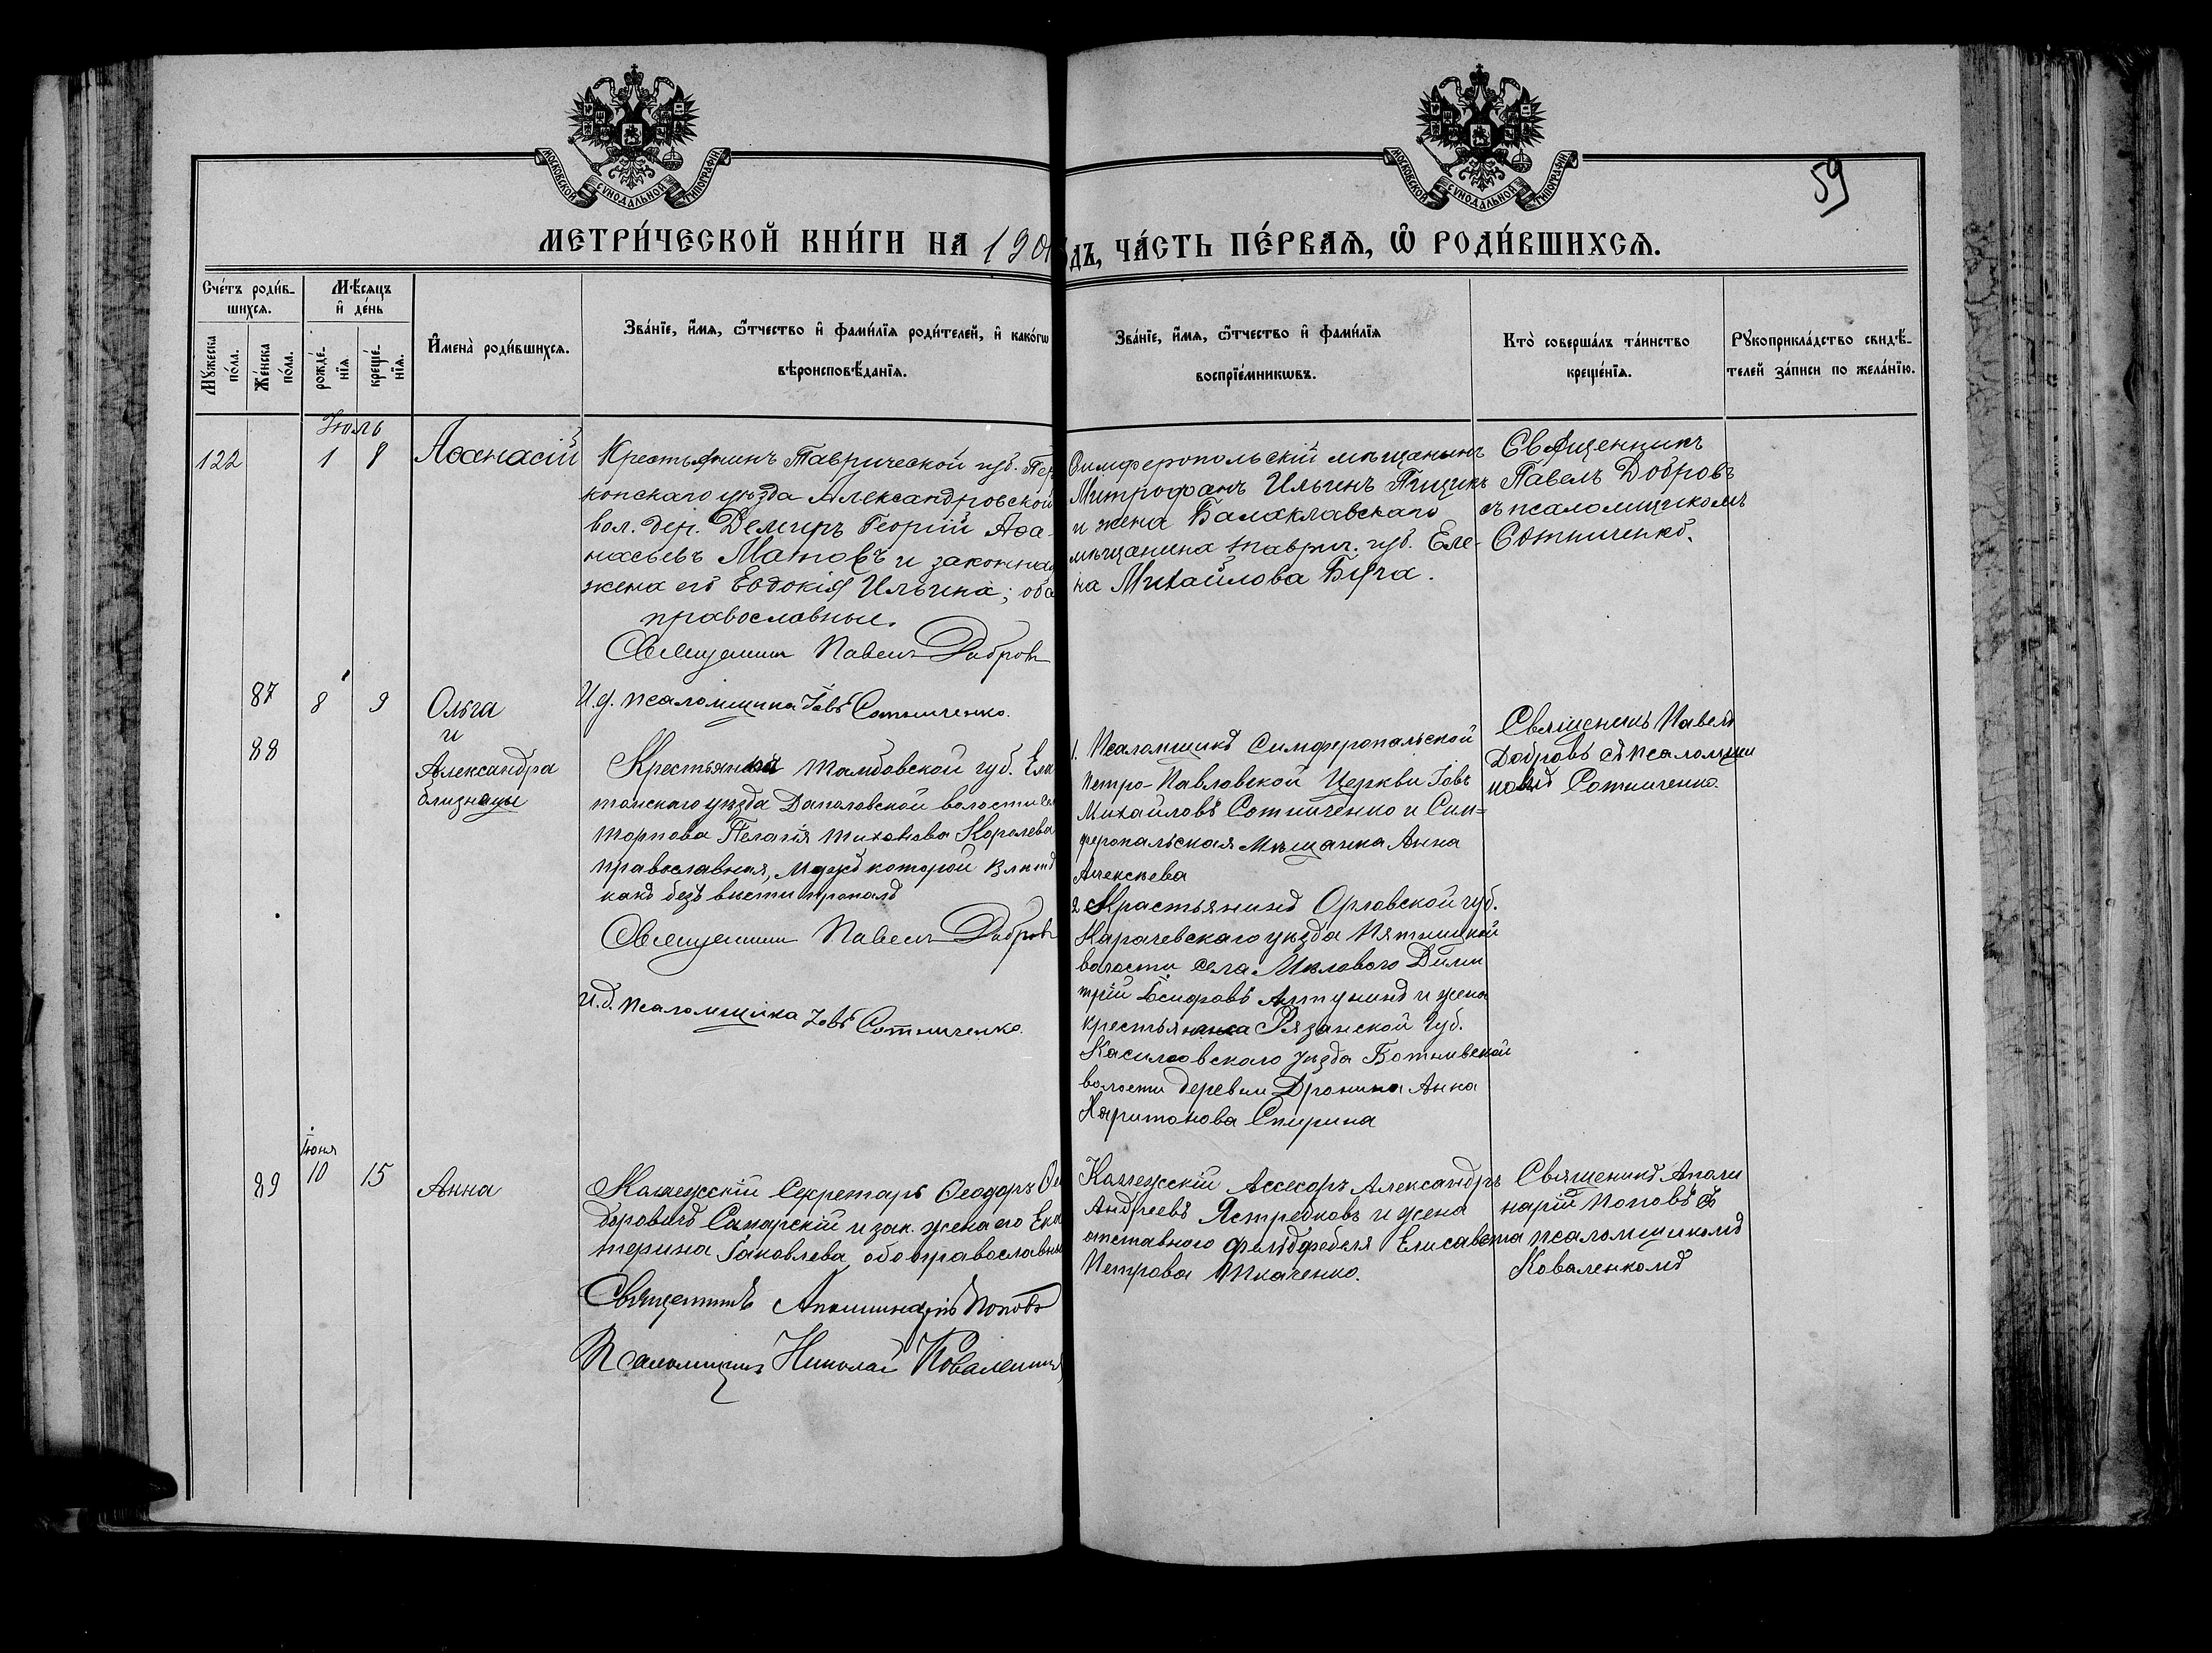 МОСКОВСКОЙ СѴНОДАЛЬНОЙ ТИПОГРАФІИ
МОСКОВСКОЙ СѴНОДАЛЬНОЙ ТИПОГРАФІИ
59
МЕТРИ́ЧЕСКОЙ КНИ́ГИ НА 190
ДЪ, ЧА́СТЬ ПЕ́РВАѦ, Ѽ РОДИ́ВШИХСѦ.
Сче́тъ роди́в-
шихсѧ.
Мѣ́сѧцъ
и҆ де́нь
Мꙋ́жеска по́ла.
Же́нска по́ла.
рожде́-нїѧ
креще́-нїѧ.
И҆мена̀ роди́вшихсѧ.
Зва́нїе, и҆́мѧ, ѻ҆́тчество и҆ фами́лїѧ роди́телей, и҆ како́гѡ
вѣроисповѣ́данїѧ.
Зва́нїе, и҆́мѧ, ѻ҆́тчество и҆ фами́лїѧ
воспрїе́мникѡвъ.
Кто̀ соверша́лъ та́инство
креще́нїѧ.
Рꙋкоприкла́дство свидѣ́-
телей за́писи по жела́нїю.
Іюль
122 1 8 Аѳанасій
Крестьянинъ Таврической губ. Пер
копскаго уѣзда Александровской
вол. дер. Демиръ Георгій Аѳа-
насьевъ Матовъ и законная
жена его Евдокія Ильина; оба
православные.
Священникъ Павелъ Добровъ
И.д. псаломщика Іовъ Сотниченко.
Симферопольскій мѣщанинъ
Митрофанъ Ильинъ Птицикъ
и жена Балаклавскаго
мѣщанина таврич. губ. Еле-
на Михайлова Буча.
Священникъ
Павелъ Добровъ
съ псаломщикомъ
Сотниченко.
87 8 9 Ольга
и
88 Александра
близнецы
Тамбовской губ. Ела
томскаго уѣзда волости се
Пелагія Тихонова Королева
православная, мужъ которой
какъ безъ вѣсти пропалъ
Священникъ Павелъ Добровъ
И.д. псаломщика Іовъ Сотниченко.
1. Псаломщикъ Симферопольской
Петро-Павловской Церкви Іовъ
Михайловъ Сотниченко и Сим=
феропольская Мѣщанка Анна
Алексѣева
2 Крастьянинъ Орловской губ.
Карачевскаго уѣзда Пятницкой
волости села Мѣлового Дими
трій Алтунинъ и жена
крестьянина Рязанской Губ.
Касимовскаго уѣзда
волости деревни Дронина Анна
Харитонова Спирина
Священикъ Павелъ
Добровъ съ псаломщи
комъ Сотниченко
Іюня
89 10 15 Анна
Коллежскій Секретарь Ѳеодоръ Ѳе
доровичъ Самарскій и зак. жена его Ека
терина Іаковлева, оба православные
Священникъ Аполлинарій Поповъ
Псаломщикъ Николай Коваленко
Коллежскій Ассесоръ Александръ
Андреевъ Ястребковъ и жена
отставного фельдфебеля Елисавета
Петрова Ткаченко.
Священикъ Аполи
нарій Поповъ съ
псаломщикомъ
Коваленкомъ